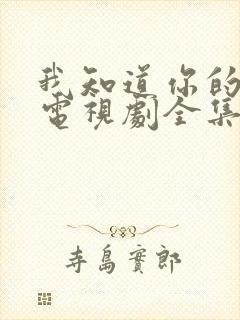 我知道你的
電視劇全集
寺島實郎